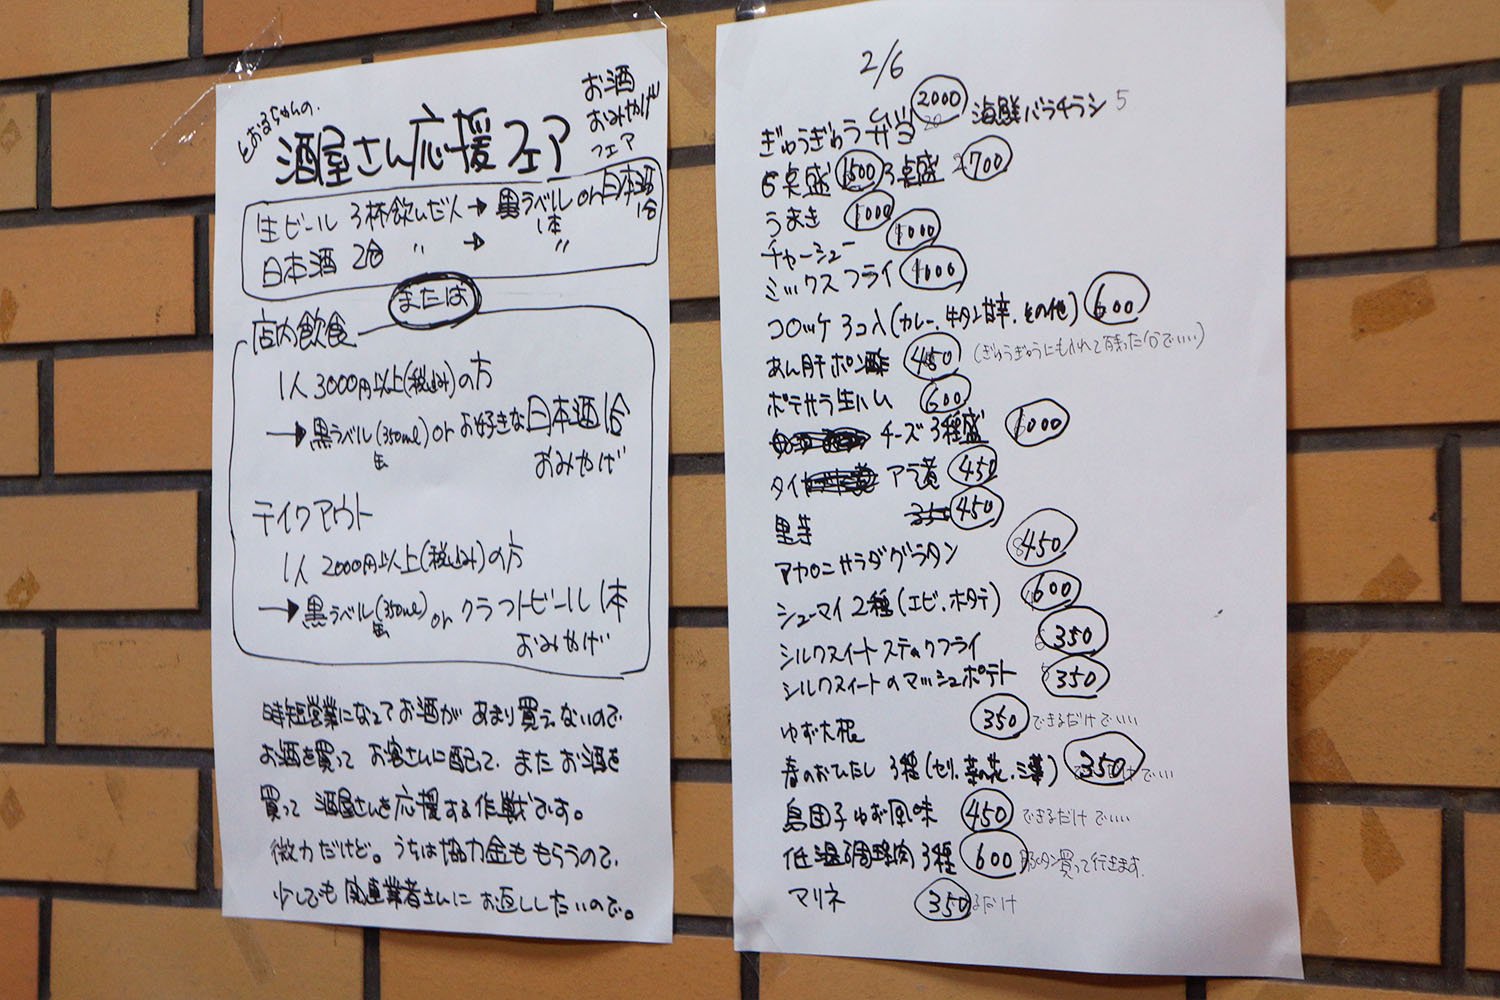 とおるちゃんの
酒屋さん応援フェア
お酒
おみやげ
フェア
生ビール 3杯飲んだ人 → 黒ラベル 1本 or 日本酒 1合
日本酒 2合 〃 → 〃
または
店内飲食
1人 3000円以上(税込み)の方
→ 黒ラベル(350ml)缶 or お好きな日本酒1合
おみやげ
テイクアウト
1人 2000円以上(税込み)の方
→ 黒ラベル(350ml)缶 or クラフトビール 1本
おみやげ
時短営業になってお酒があまり買えないので
お酒を買って お客さんに配って、また お酒を
買って 酒屋さんを応援する作戦です。
微力だけど。うちは協力金ももらうので、
少しでも 関連業者さんに お返ししたいので。
2/6
ぎゅうぎゅう弁当 2000 海鮮バラチラシ 5
5点盛 1500 3点盛 700
うまき 1000
チャーシュー 1000
ミックスフライ 1000
コロッケ 3コ入(カレー、牛タン甘辛、その他) 600
あん肝ポン酢 450 (ぎゅうぎゅうにも入れて残った分でいい)
ポテサラ生ハム 600
チーズ3種盛 1000
タイ アラ煮 450
里芋 350 450
マカロニサラダグラタン 450
シューマイ 2種(エビ、ホタテ) 600
シルクスイートスティックフライ 350
シルクスイートのマッシュポテト 350
ゆず大根 350 できるだけでいい
春のおひたし 3種(セリ、菜の花、三葉) 350 けでいい
鳥団子ゆず風味 450 できるだけでいい
低温調理肉3種 600 豚タン買って行きます
マリネ 350 るだけ